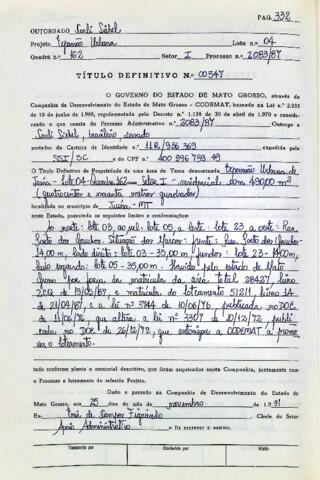 PAG. 332
OUTORGADO Sarli Sichel
Projeto Expansão Urbana Lote n.º 04
Quadra n.º 162 Setor I Processo n.º 2083/87
TÍTULO DEFINITIVO N.º 00547
O GOVERNO DO ESTADO DE MATO GROSSO, através da
Companhia de Desenvolvimento do Estado de Mato Grosso - CODEMAT, baseado na Lei n.º 2.933
de 10 de junho de 1969, regulamentada pelo Decreto n.º 1.138 de 30 de abril de 1970 e considerando
o que consta do Processo Administrativo n.º 2083/87 Outorga a
Sarli Sichel, brasileiro, casado
portador da Carteira de Identidade n.º 11R/936 369 expedida pela
SSI/SC e do CPF n.º 400 296 799 49
O Título Definitivo de Propriedade de uma área de Terra denominada Expansão Urbana de
Juína - Lote 04 - Quadra 162 - Setor I - com 490,00 m²
(quatrocentos e noventa metros quadrados)
localizada no município de Juína - MT
neste Estado, passando os seguintes limites e confrontações:
Ao norte: lote 03, ao sul: lote 05, a leste: lote 23, a oeste: Rua
Porto dos Gaúchos. Situação dos Marcos: frente: Rua Porto dos Gaúchos
14,00 m, lado direito: lote 03 - 35,00 m, fundos: lote 23 - 14,00 m,
lado esquerdo: lote 05 - 35,00 m. Havida pelo estado de Mato
Grosso por força da matrícula da área total 28427, livro
2CQ de 19/03/87, e matrícula do loteamento 51211, livro
21/09/87, e a lei nº 3744 de 10/06/76, publicada no DOE
de 11/06/76, que altera a lei nº 3307 de 10/12/72, publicada
no DOE de 26/12/72, que autorizou a CODEMAT a promover
o loteamento.
tudo conforme planta e memorial descritivo, que ficam arquivados nesta Companhia, juntamente com
o Processo e loteamento do referido Projeto.
Dado e passado na Companhia de Desenvolvimento do Estado de
Mato Grosso, aos 25 dias do mês de novembro de 1991
Eu, de Campos Figueiredo Chefe do Setor
Apoio Administrativo o fiz escrever e assino.
Transcrito por Conferido por Visto